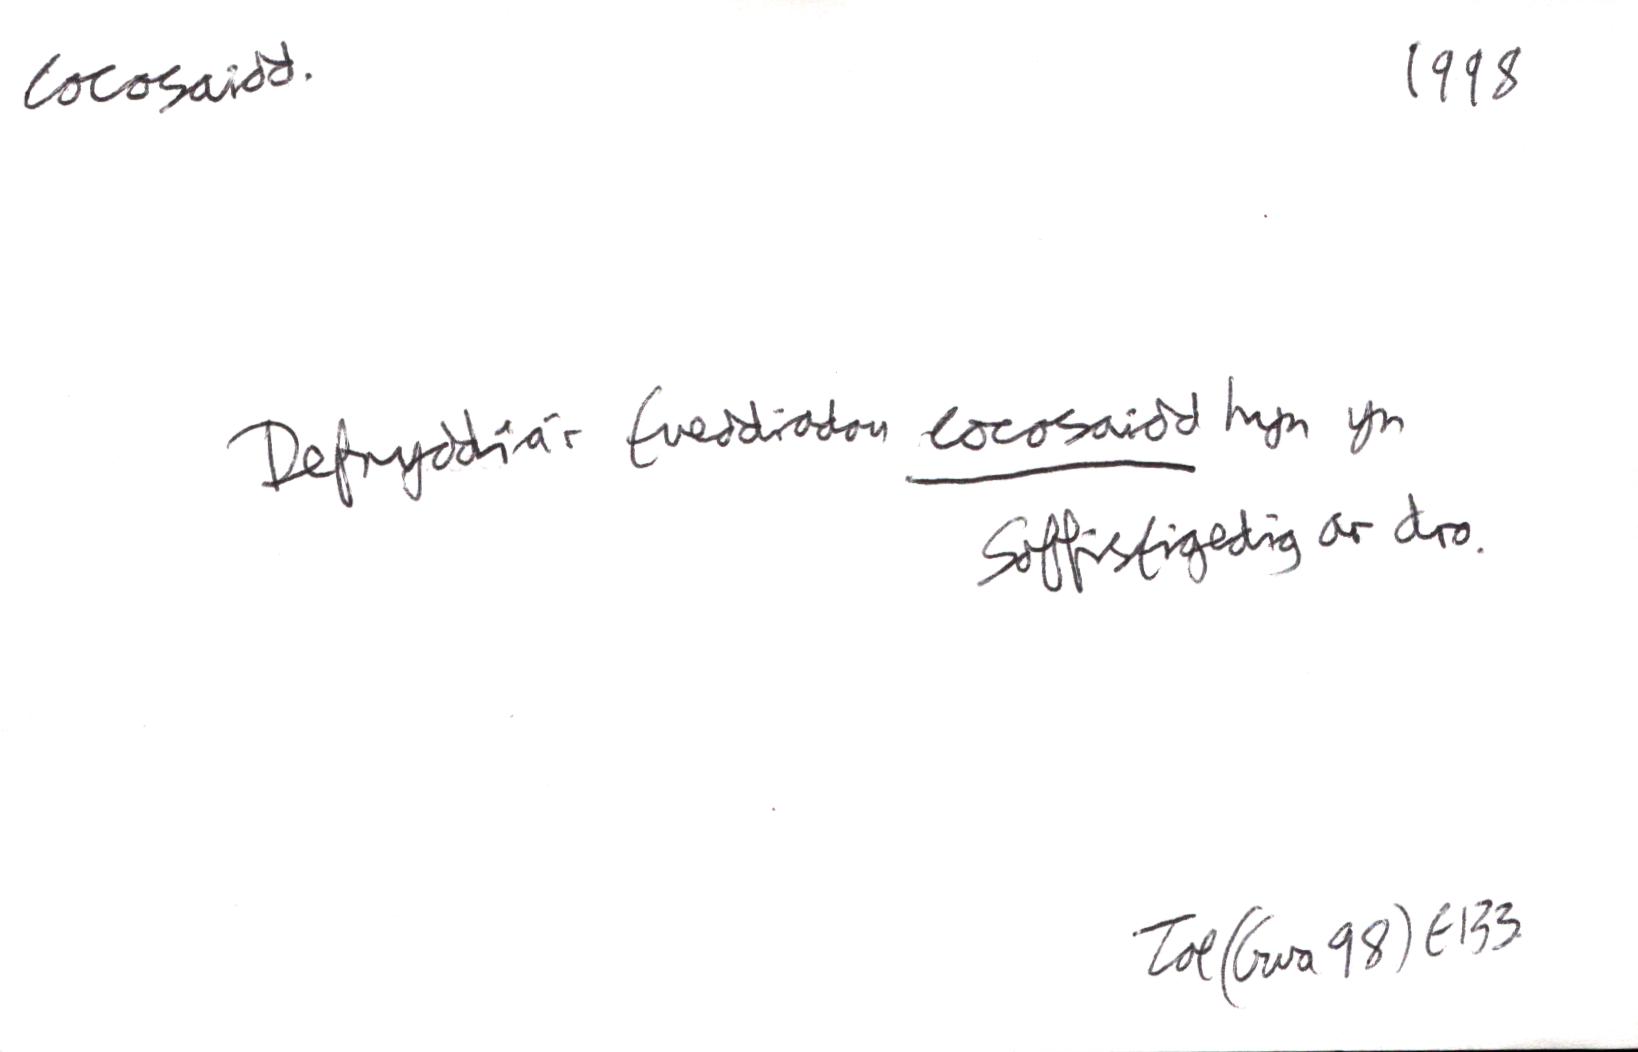 cocosaidd. 1998
Defnyddia'r tueddiadau cocosaidd hyn yn
soffistigedig ar dro.
Tal (Gwa 98) t133